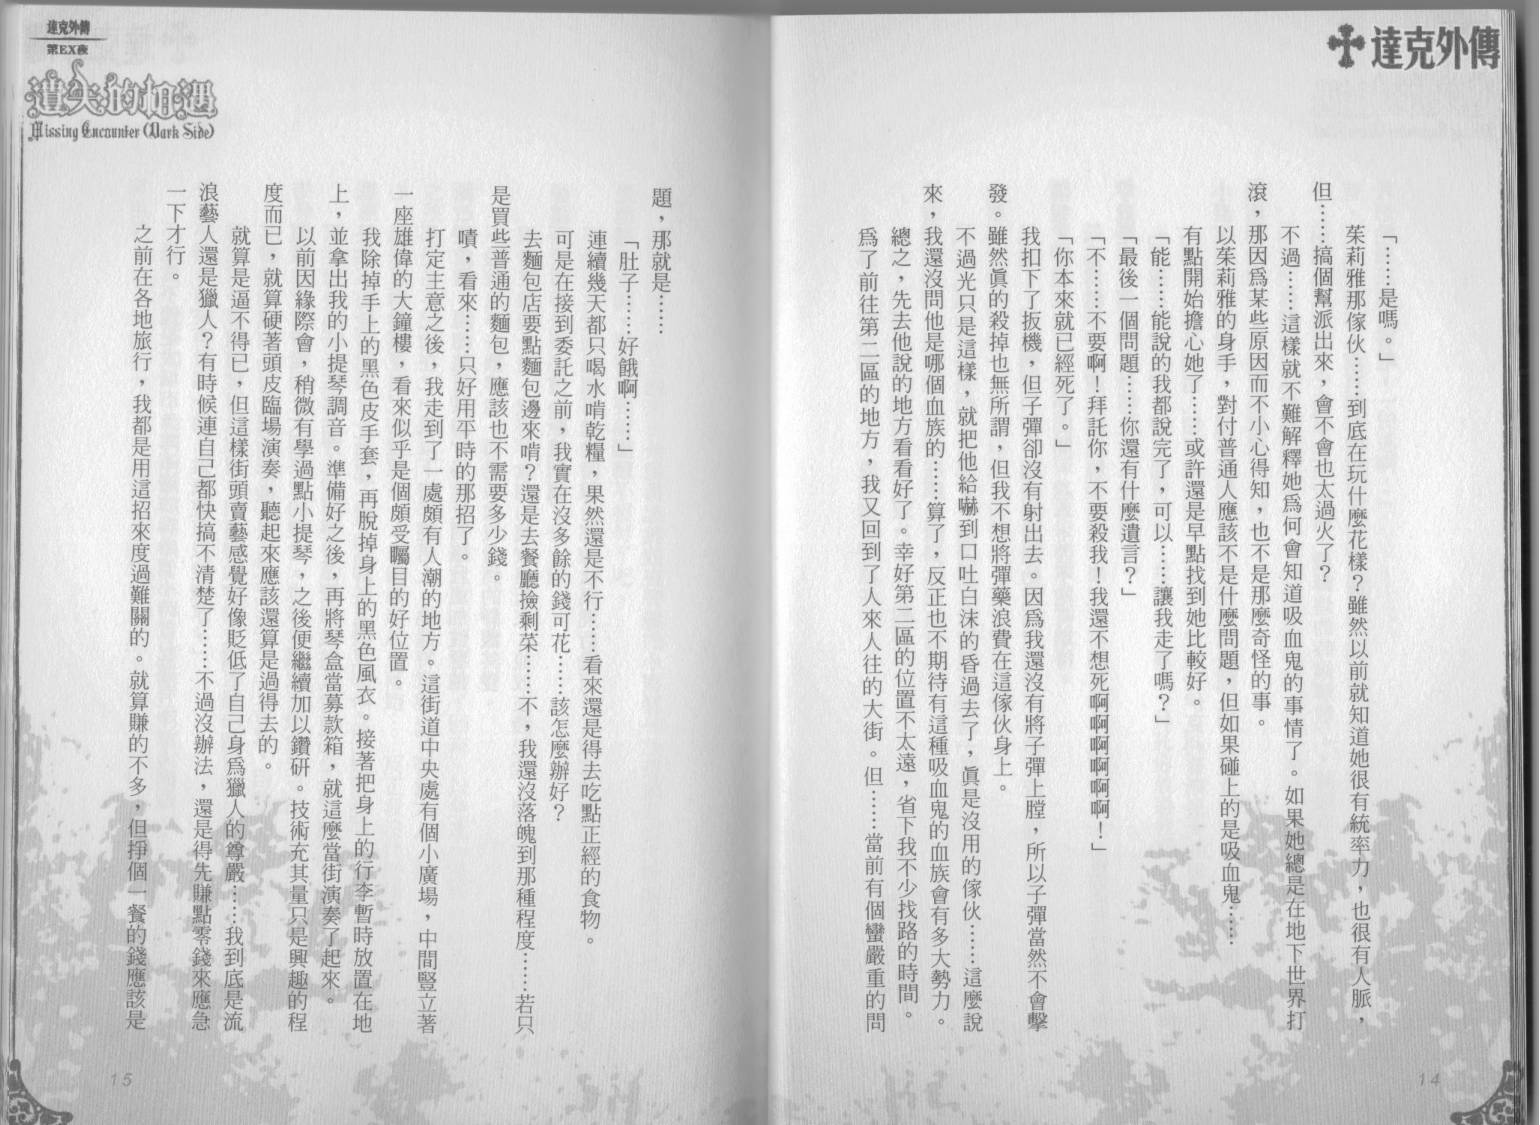 達克外傳
「……是嗎。」
茱莉雅那傢伙……到底在玩什麼花樣？雖然以前就知道她很有統率力，也很有人脈，
但……搞個幫派出來，會不會也太過火了？
不過……這樣就不難解釋她爲何會知道吸血鬼的事情了。如果她總是在地下世界打
滾，那因爲某些原因而不小心得知，也不是那麼奇怪的事。
以茱莉雅的身手，對付普通人應該不是什麼問題，但如果碰上的是吸血鬼……
有點開始擔心她了……或許還是早點找到她比較好。
「能……能說的我都說完了，可以……讓我走了嗎？」
「最後一個問題……你還有什麼遺言？」
「不……不要啊！拜託你，不要殺我！我還不想死啊啊啊啊啊啊！」
「你本來就已經死了。」
我扣下了扳機，但子彈卻沒有射出去。因爲我還沒有將子彈上膛，所以子彈當然不會擊
發。雖然眞的殺掉也無所謂，但我不想將彈藥浪費在這傢伙身上。
不過光只是這樣，就把他給嚇到口吐白沫的昏過去了，眞是沒用的傢伙……這麼說
來，我還沒問他是哪個血族的……算了，反正也不期待有這種吸血鬼的血族會有多大勢力。
總之，先去他說的地方看看好了。幸好第二區的位置不太遠，省下我不少找路的時間。
爲了前往第二區的地方，我又回到了人來人往的大街。但……當前有個蠻嚴重的問
14
達克外傳
第EX夜
遺失的相遇
Missing Encounter (Dark Side)
題，那就是……
「肚子……好餓啊……」
連續幾天都只喝水啃乾糧，果然還是不行……看來還是得去吃點正經的食物。
可是在接到委託之前，我實在沒多餘的錢可花……該怎麼辦好？
去麵包店要點麵包邊來啃？還是去餐廳撿剩菜……不，我還沒落魄到那種程度……若只
是買些普通的麵包，應該也不需要多少錢。
嘖，看來……只好用平時的那招了。
打定主意之後，我走到了一處頗有人潮的地方。這街道中央處有個小廣場，中間豎立著
一座雄偉的大鐘樓，看來似乎是個頗受矚目的好位置。
我除掉手上的黑色皮手套，再脫掉身上的黑色風衣。接著把身上的行李暫時放置在地
上，並拿出我的小提琴調音。準備好之後，再將琴盒當募款箱，就這麼當街演奏了起來。
以前因緣際會，稍微有學過點小提琴，之後便繼續加以鑽研。技術充其量只是興趣的程
度而已，就算硬著頭皮臨場演奏，聽起來應該還算是過得去的。
就算是逼不得已，但這樣街頭賣藝感覺好像貶低了自己身爲獵人的尊嚴……我到底是流
浪藝人還是獵人？有時候連自己都快搞不清楚了……不過沒辦法，還是得先賺點零錢來應急
一下才行。
之前在各地旅行，我都是用這招來度過難關的。就算賺的不多，但掙個一餐的錢應該是
15